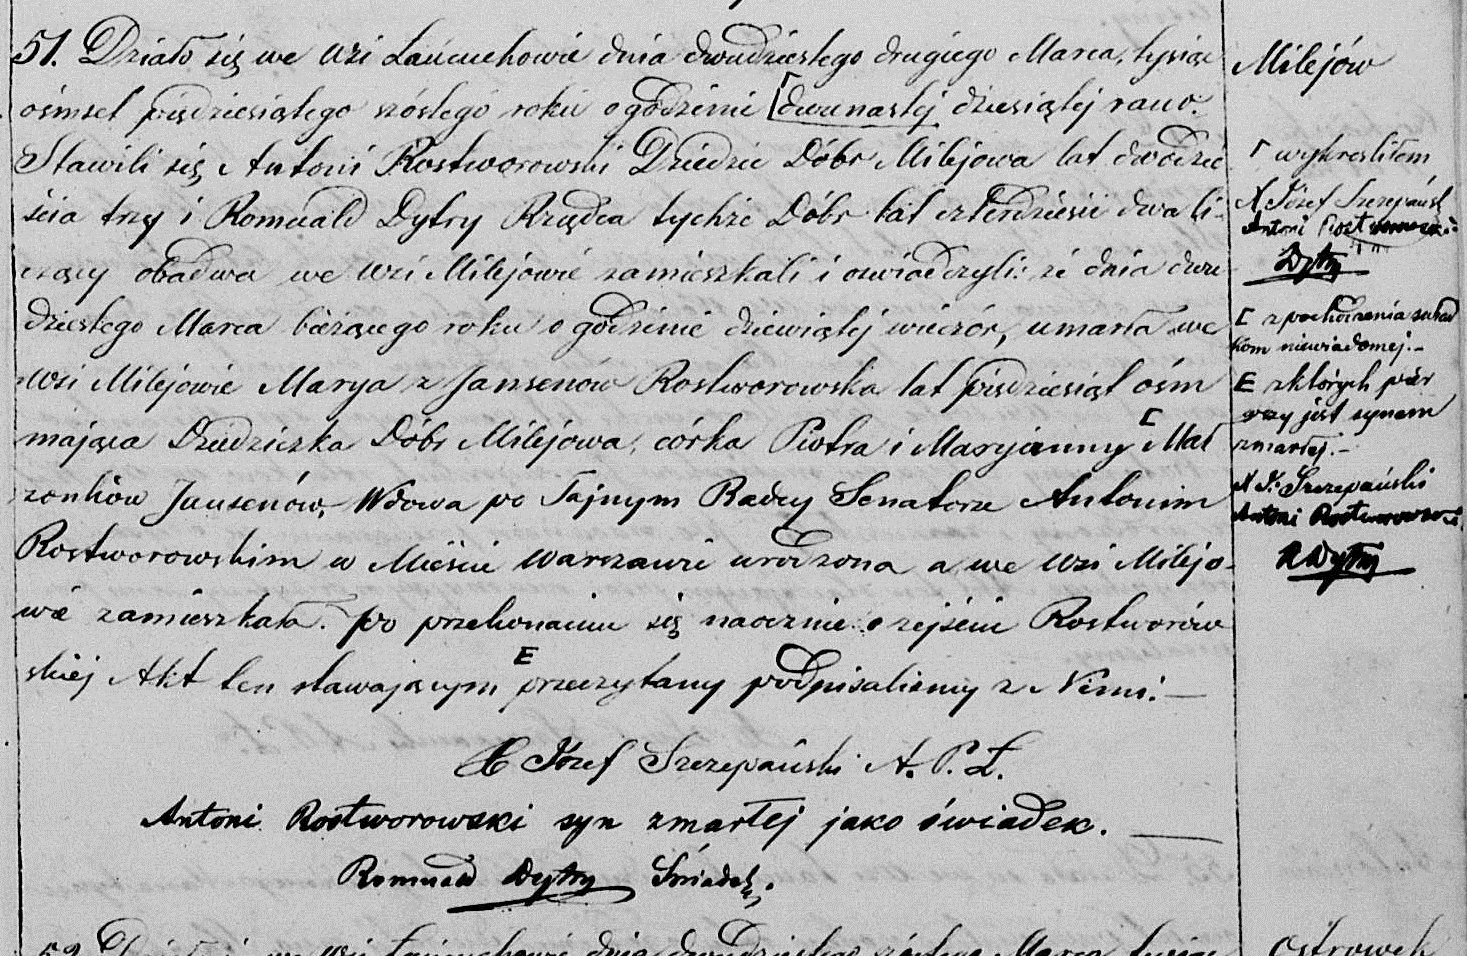 51. Działo się we wsi Łańcuchowie dnia dwudziestego drugiego Marca, tysiąc
ośmset pięćdziesiątego szóstego roku o godzinie [dwunastej dziesiątej rano.
Stawili się Antoni Rostworowski Dziedzic Dóbr Milejowa lat dwódzie
ścia trzy i Romuald Dytry Rządca tychże Dóbr lat czterdzieści dwa li-
czący obadwa we wsi Milejowie zamieszkali i oswiadczyli: że dnia dwu
dziestego Marca bieżącego roku o godzinie dziewiątej wieczór, umarła we
wsi Milejowie Marya z Jansenów Rostworowska lat pięćdziesiąt ośm
mająca Dziedziczka Dóbr Milejowa, córka Piotra i Maryanny [ Mał
żonków Jansenów, Wdowa po Tajnym Radcy Senatorze Antonim
Rostworowskim w Mieście Warszawie urodzona a we wsi Milejo-
wie zamieszkała. po przekonaniu się naocznie o zejściu Rostworów
skiéj Akt ten stawającym E przeczytany podpisaliśmy z Nimi: —
X Józef Szczepański A. P. Ł.
Antoni Rostworowski syn zmarłej jako świadek.
Romuald Dytry Świadek.
Milejów
Γ wykreśliłem
X Józef Szczepański
Antoni Rostworowski
Dytry
[ z pochodzenia świad
kom niewiadomej.-
E z których pier
wszy jest synem
zmarłej.-
X J. Szczepański
Antoni Rostworowski
R Dytry
52. Działo się we wsi Łańcuchowie dnia dwudziestego szóstego Marca tysiąc
Ostrowek